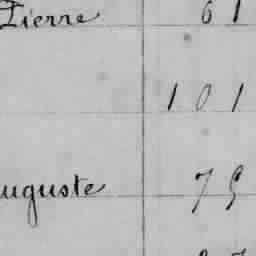 Pierre 61
101
uguste 75